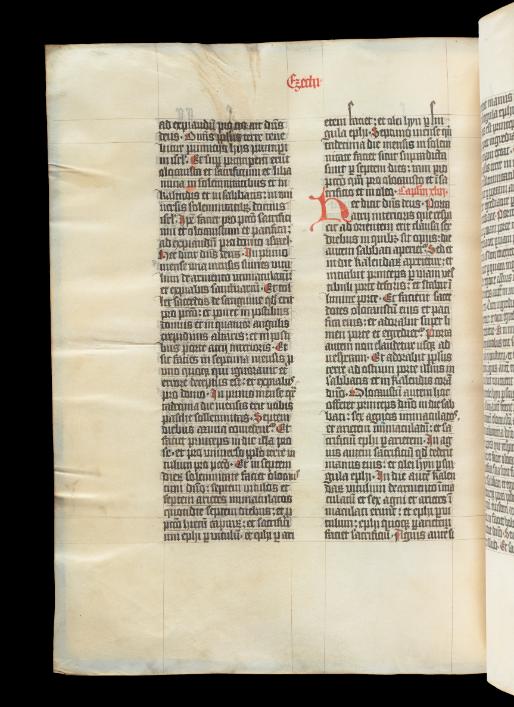 Ezechi
ad expiandū pro eis ait dn̄s
deus. Om̄is pp̄lus terre tene
bitur primicijs hijs principi
in isrl̄. Et sup̄ principem erūt
olocausta et sacrificium et liba
mina in solemnitatibus et in
kalendis et in sabbatis: in uni
versis solemnitatibus domus
isrl̄. Ip̄e faciet pro pctō sacrifici
um et olocaustum et pacifica:
ad expiandū pro domo israel.
Hec dicit dn̄s deus. In primo
mense una mensis sumes vitu
lum de armento immaculatū
et expiabis sanctuariū. Et tol
let sacerdos de sanguine qd̄ erit
pro pctō: et ponet in postibus
domus et in quatuor angulis
crepidinis altaris: et in posti
bus porte atrij interioris. Et
sic facies in septima mensis p̄
uno quoqz qui ignoravit et
errore deceptus est: et expiabis
pro domo. In primo mense q̄r
tadecima die mensis erit vobis
pasche sollemnitas. Septem
diebus azima comedetʳ. Et
faciet princeps in die illa pro
se et pro universo pp̄lo terre vi
tulum pro pctō. Et in septem
dierū solemnitate faciet olocau
stum dn̄o: septem vitulos et
septem arietes immaculatos
quotidie septem diebus: et p̄
pctō hircū caprarū: et sacrifici
um ephi p̄ vitulū: et ephi p̄ ari
etem faciet: et olei hyn p̄ sin
gula ephi. Septimo mense q̄n
tadecima die mensis in solem
nitate faciet sicut supradicta
sunt p̄ septem dies: tam pro
pctō qm̄ pro olocausto et i sa
crificio et in oleo. Caplm xlvi.
Hec dicit dn̄s deus. Porta
atrij interioris que respi
cit ad orientem erit clausa sex
diebus in quibz sit opus: die
autem sabbati aperietʳ. Sed et
in die kalendarū aperietur: et
intrabit princeps p̄ viam ves
tibuli porte deforis: et stabit i
limine porte. Et facient sacer
dotes olocaustū eius et paci
fica eius: et adorabit super li
men porte et egredietʳ. Porta
autem non claudetur usqz ad
vesperam. Et adorabit pp̄lus
terre ad ostium porte illius in
sabbatis et in kalendis corā
dn̄o. Olocaustū autem hoc
offeret princeps dn̄o in die sab
bati: sex agnos immaculatos
et arietem immaculatū: et sa
crificiū ephi p̄ arietem. In ag
nis autem sacrificiū qd̄ dederit
manus eius: et olei hyn p̄ sin
gula ephi. In die autē kalen
darū vitulum de armento im̄a
culatū et sex agni et arietes i
maculati erunt: et ephi p̄ vi
tulum: ephi quoqz p̄ arietem
faciet sacrificiū. Agnis autē si